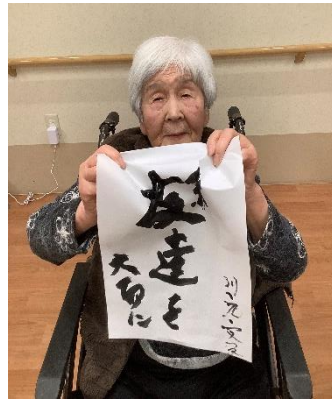 友達を
大事に